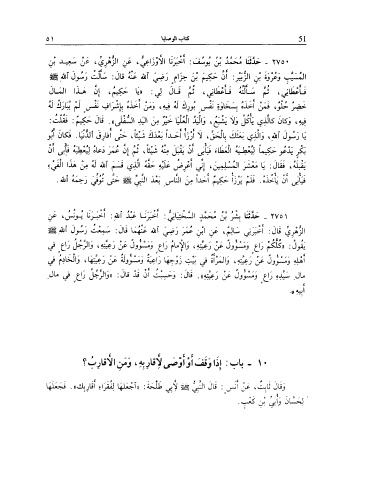 ٥١ كتاب الوصايا 51
٢٧٥٠ - حَدَّثَنَا مُحَمَّدُ بْنُ يُوسُفَ: أَخْبَرَنَا الأَوْزَاعِيُّ، عَنِ الزُّهْرِيِّ، عَنْ سَعِيدِ بْنِ
المُسَيَّبِ وَعُرْوَةَ بْنِ الزُّبَيْرِ: أَنَّ حَكِيمَ بْنَ حِزَامٍ رَضِيَ اللهُ عَنْهُ قَالَ: سَأَلْتُ رَسُولَ اللهِ ﷺ
فَأَعْطَانِي، ثُمَّ سَأَلْتُهُ فَأَعْطَانِي، ثُمَّ قَالَ لِي: «يَا حَكِيمُ، إِنَّ هَذَا المَالَ
خَضِرٌ حُلْوٌ، فَمَنْ أَخَذَهُ بِسَخَاوَةِ نَفْسٍ بُورِكَ لَهُ فِيهِ، وَمَنْ أَخَذَهُ بِإِشْرَافِ نَفْسٍ لَمْ يُبَارَكْ لَهُ
فِيهِ، وَكَانَ كَالَّذِي يَأْكُلُ وَلَا يَشْبَعُ، وَالْيَدُ الْعُلْيَا خَيْرٌ مِنَ الْيَدِ السُّفْلَى». قَالَ حَكِيمٌ: فَقُلْتُ:
يَا رَسُولَ اللهِ، وَالَّذِي بَعَثَكَ بِالْحَقِّ، لَا أَرْزَأُ أَحَداً بَعْدَكَ شَيْئاً، حَتَّى أُفَارِقَ الدُّنْيَا. فَكَانَ أَبُو
بَكْرٍ يَدْعُو حَكِيماً لِيُعْطِيَهُ الْعَطَاءَ فَيَأْبَى أَنْ يَقْبَلَ مِنْهُ شَيْئاً، ثُمَّ إِنَّ عُمَرَ دَعَاهُ لِيُعْطِيَهُ فَأَبَى أَنْ
يَقْبَلَهُ، فَقَالَ: يَا مَعْشَرَ الْمُسْلِمِينَ، إِنِّي أَعْرِضُ عَلَيْهِ حَقَّهُ الَّذِي قَسَمَ اللهُ لَهُ مِنْ هَذَا الْفَيْءِ
فَيَأْبَى أَنْ يَأْخُذَهُ. فَلَمْ يَرْزَأْ حَكِيمٌ أَحَداً مِنَ النَّاسِ بَعْدَ النَّبِيِّ ﷺ حَتَّى تُوُفِّيَ رَحِمَهُ اللهُ.
٢٧٥١ - حَدَّثَنَا بِشْرُ بْنُ مُحَمَّدٍ السَّخْتِيَانِيُّ: أَخْبَرَنَا عَبْدُ اللهِ: أَخْبَرَنَا يُونُسُ، عَنِ
الزُّهْرِيِّ قَالَ: أَخْبَرَنِي سَالِمٌ، عَنِ ابْنِ عُمَرَ رَضِيَ اللهُ عَنْهُمَا قَالَ: سَمِعْتُ رَسُولَ اللهِ ﷺ
يَقُولُ: «كُلُّكُمْ رَاعٍ وَمَسْؤُولٌ عَنْ رَعِيَّتِهِ، وَالإِمَامُ رَاعٍ وَمَسْؤُولٌ عَنْ رَعِيَّتِهِ، وَالرَّجُلُ رَاعٍ فِي
أَهْلِهِ وَمَسْؤُولٌ عَنْ رَعِيَّتِهِ، وَالْمَرْأَةُ فِي بَيْتِ زَوْجِهَا رَاعِيَةٌ وَمَسْؤُولَةٌ عَنْ رَعِيَّتِهَا، وَالْخَادِمُ فِي
مَالِ سَيِّدِهِ رَاعٍ وَمَسْؤُولٌ عَنْ رَعِيَّتِهِ». قَالَ: وَحَسِبْتُ أَنْ قَدْ قَالَ: «وَالرَّجُلُ رَاعٍ فِي مَالِ
أَبِيهِ».
١٠ - باب: إِذَا وَقَفَ أَوْ أَوْصَى لأَقَارِبِهِ، وَمَنِ الأَقَارِبُ؟
وَقَالَ ثَابِتٌ، عَنْ أَنَسٍ: قَالَ النَّبِيُّ ﷺ لأَبِي طَلْحَةَ: «اجْعَلْهَا لِفُقَرَاءِ أَقَارِبِكَ». فَجَعَلَهَا
لِحَسَّانَ وَأُبَيِّ بْنِ كَعْبٍ.